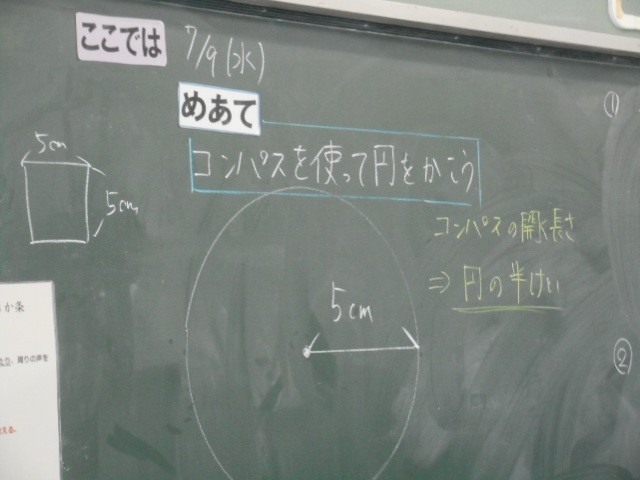 ここでは
7/9(水)
めあて
コンパスを使って円をかこう
5cm
5cm
コンパスの開く長さ
⇒ 円の半けい
5cm
①
②
か条
周りの声を